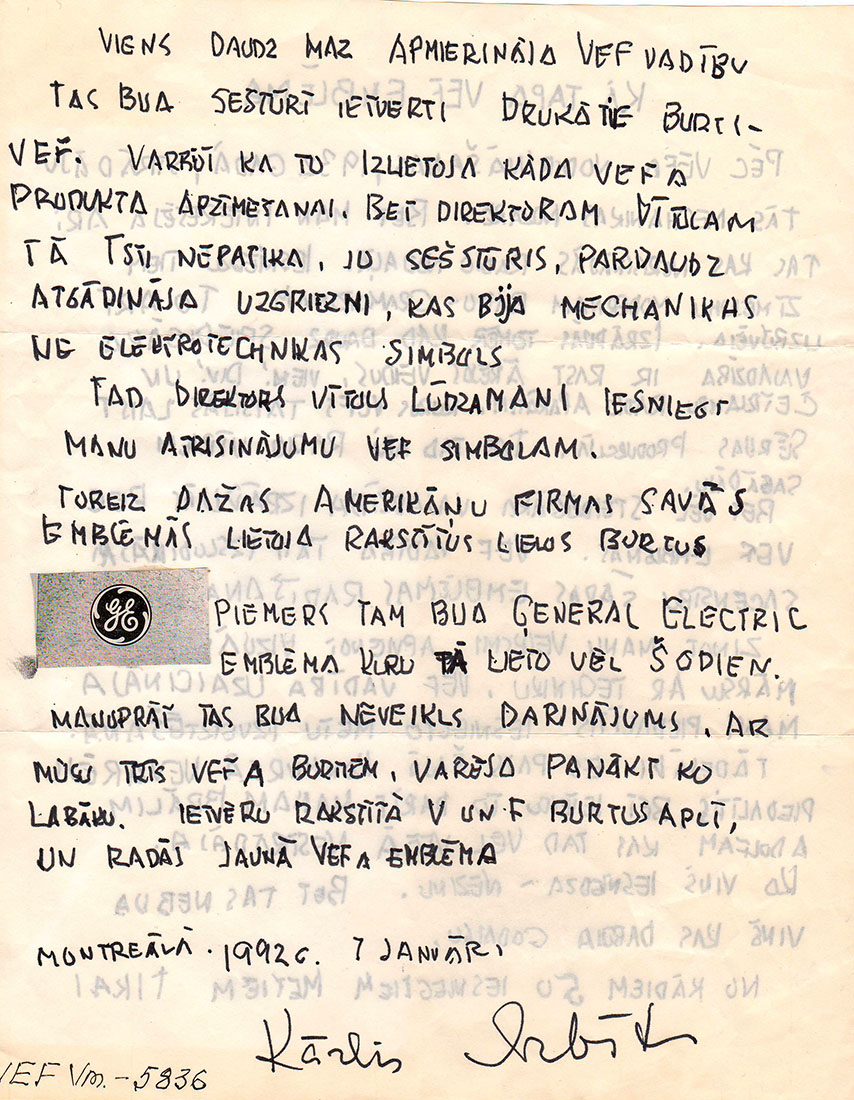 VIENS DAUDZ MAZ APMIERINĀJA VEF VADĪBU
TAS BIJA SEŠTŪRĪ IETVERTI DRUKĀTIE BURTI-
VEF. VARBŪT KA TO IZLIETOJA KĀDA VEF A
PRODUKTA APZĪMĒŠANAI. BET DIREKTORAM VĪTOLAM
TĀ ĪSTI NEPATIKA, JO SEŠSTŪRIS, PARDAUDZ
ATGĀDINĀJA UZGRIEZNI, KAS BIJA MECHANIKAS
NE ELEKTROTECHNIKAS SIMBOLS
TAD DIREKTORS VĪTOLS LŪDZA MANI IESNIEGT
MANU ATRISINĀJUMU VEF SIMBOLAM.
TOREIZ DAŽAS AMERIKĀŅU FIRMAS SAVĀS
EMBLĒMĀS LIETOJA RAKSTĪTUS LIELOS BURTUS
GE
PIEMERS TAM BIJA ĢENERAL ELECTRIC
EMBLĒMA KURU TĀ LIETO VĒL ŠODIEN.
MANUPRĀT TAS BIJA NEVEIKLS DARINĀJUMS, AR
MŪSU TRĪS VEF A BURTIEM, VARĒJA PANĀKT KO
LABĀKU. IETVĒRU RAKSTĪTĀ V UN F BURTUS APLĪ,
UN RADĀS JAUNĀ VEF A EMBLĒMA
MONTREĀLĀ. 1992 G. 7 JANVĀRI
Kārlis
VEF Vm. - 5836